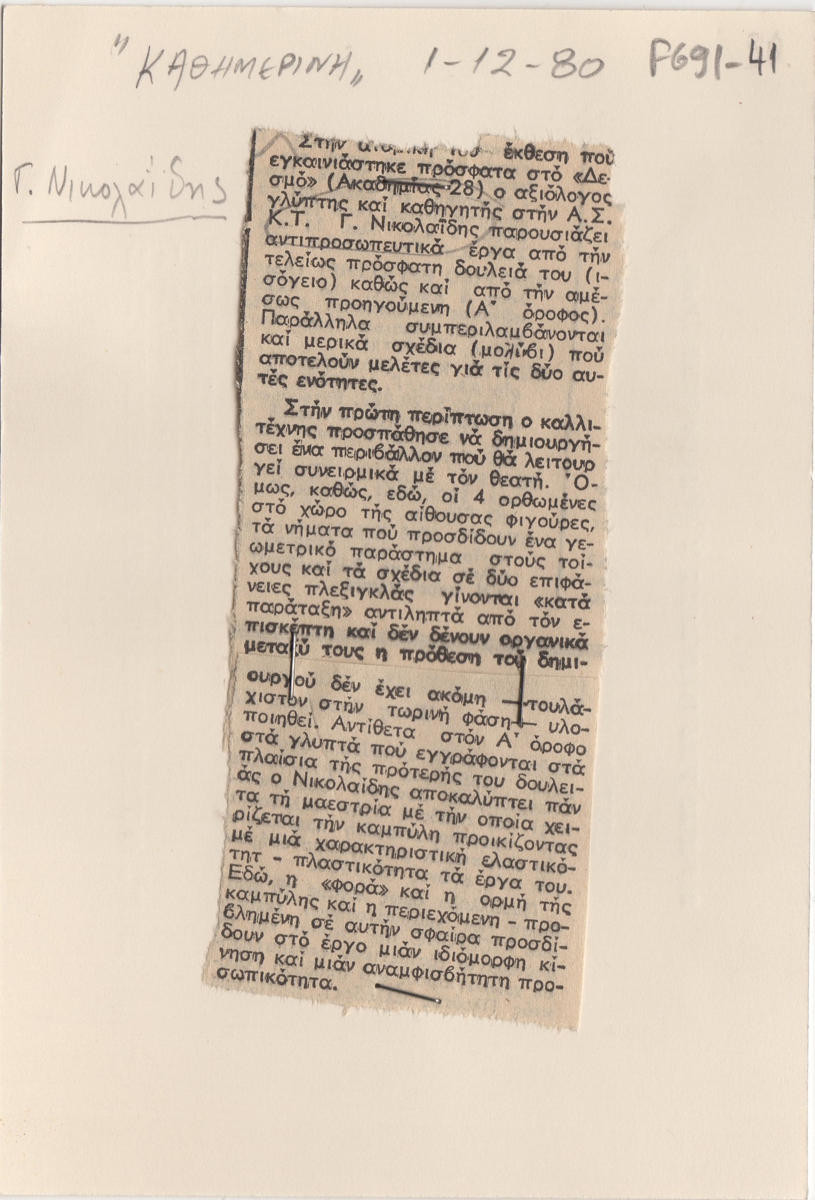 "ΚΑΘΗΜΕΡΙΝΗ" 1-12-80 F691-41
Γ. Νικολαΐδης
Στήν ατομική του έκθεση πού
εγκαινιάστηκε πρόσφατα στό «Δε-
σμό» (Ακαδημίας 28) ο αξιόλογος
γλύπτης καί καθηγητής στήν Α.Σ.
Κ.Τ. Γ. Νικολαΐδης παρουσιάζει
αντιπροσωπευτικά έργα από τήν
τελείως πρόσφατη δουλειά του (ι-
σόγειο) καθώς καί από τήν αμέ-
σως προηγούμενη (Α' όροφος).
Παράλληλα συμπεριλαμβάνονται
καί μερικά σχέδια (μολύβι) πού
αποτελούν μελέτες γιά τίς δύο αυ-
τές ενότητες.
Στήν πρώτη περίπτωση ο καλλι-
τέχνης προσπάθησε νά δημιουργή-
σει ένα περιβάλλον πού θά λειτουρ
γεί συνειρμικά μέ τόν θεατή. Ό-
μως, καθώς, εδώ, οί 4 ορθωμένες
στό χώρο τής αίθουσας φιγούρες,
τά νήματα πού προσδίδουν ένα γε-
ωμετρικό παράστημα στούς τοί-
χους καί τά σχέδια σέ δύο επιφά-
νειες πλεξιγκλάς γίνονται «κατά
παράταξη» αντιληπτά από τόν ε-
πισκέπτη καί δέν δένουν οργανικά
μεταξύ τους η πρόθεση τού δημι-
ουργού δέν έχει ακόμη — τουλά-
χιστον στήν τωρινή φάση — υλο-
ποιηθεί. Αντίθετα στόν Α' όροφο
στά γλυπτά πού εγγράφονται στά
πλαίσια τής πρότερής του δουλει-
άς ο Νικολαΐδης αποκαλύπτει πάν
τα τή μαεστρία μέ τήν οποία χει-
ρίζεται τήν καμπύλη προικίζοντας
μέ μιά χαρακτηριστική ελαστικό-
τητ - πλαστικότητα τά έργα του.
Εδώ, η «φορά» καί η ορμή τής
καμπύλης καί η περιεχόμενη - προ-
βλημένη σέ αυτήν σφαίρα προσδί-
δουν στό έργο μιάν ιδιόμορφη κί-
νηση καί μιάν αναμφισβήτητη προ-
σωπικότητα.